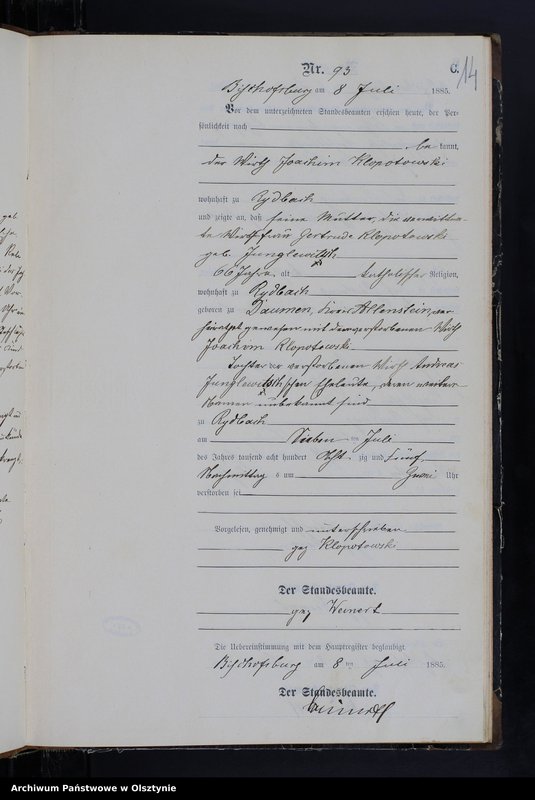 Nr. 93
C.
14
Bischofsburg am 8 Juli 1885.
Vor dem unterzeichneten Standesbeamten erschien heute, der Per-
sönlichkeit nach
be kannt,
der Wirth Joachim Klopotowski
wohnhaft zu Rydbach
und zeigte an, daß seine Mutter, die verwittwe-
te Wirthsfrau Gertrude Klopotowski
geb. Junglewitsch
66 Jahre alt katholischer Religion,
wohnhaft zu Rydbach
geboren zu Daumen, Kreis Allenstein, ver-
heirathet gewesen mit dem verstorbenen Wirth
Joachim Klopotowski
Tochter der verstorbenen Wirth Andreas
Junglewitschschen Eheleute, deren
Namen unbekannt sind
zu Rydbach
am Sieben ten Juli
des Jahres tausend acht hundert Acht zig und fünf
Nachmittag s um Uhr
verstorben sei
Vorgelesen, genehmigt und unterschrieben
gez Klopotowski
Der Standesbeamte.
gez Weinert
Die Uebereinstimmung mit dem Hauptregister beglaubigt
Bischofsburg am 8 ten Juli 1885.
Der Standesbeamte.
Weinert
Archiwum Państwowe w Olsztynie